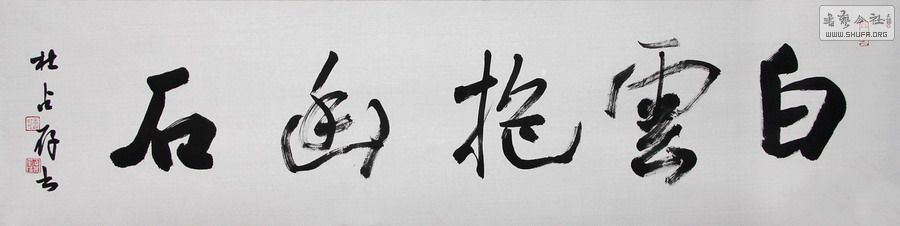 白雲抱幽石
杜占存书
書藝公社
WWW.SHUFA.ORG